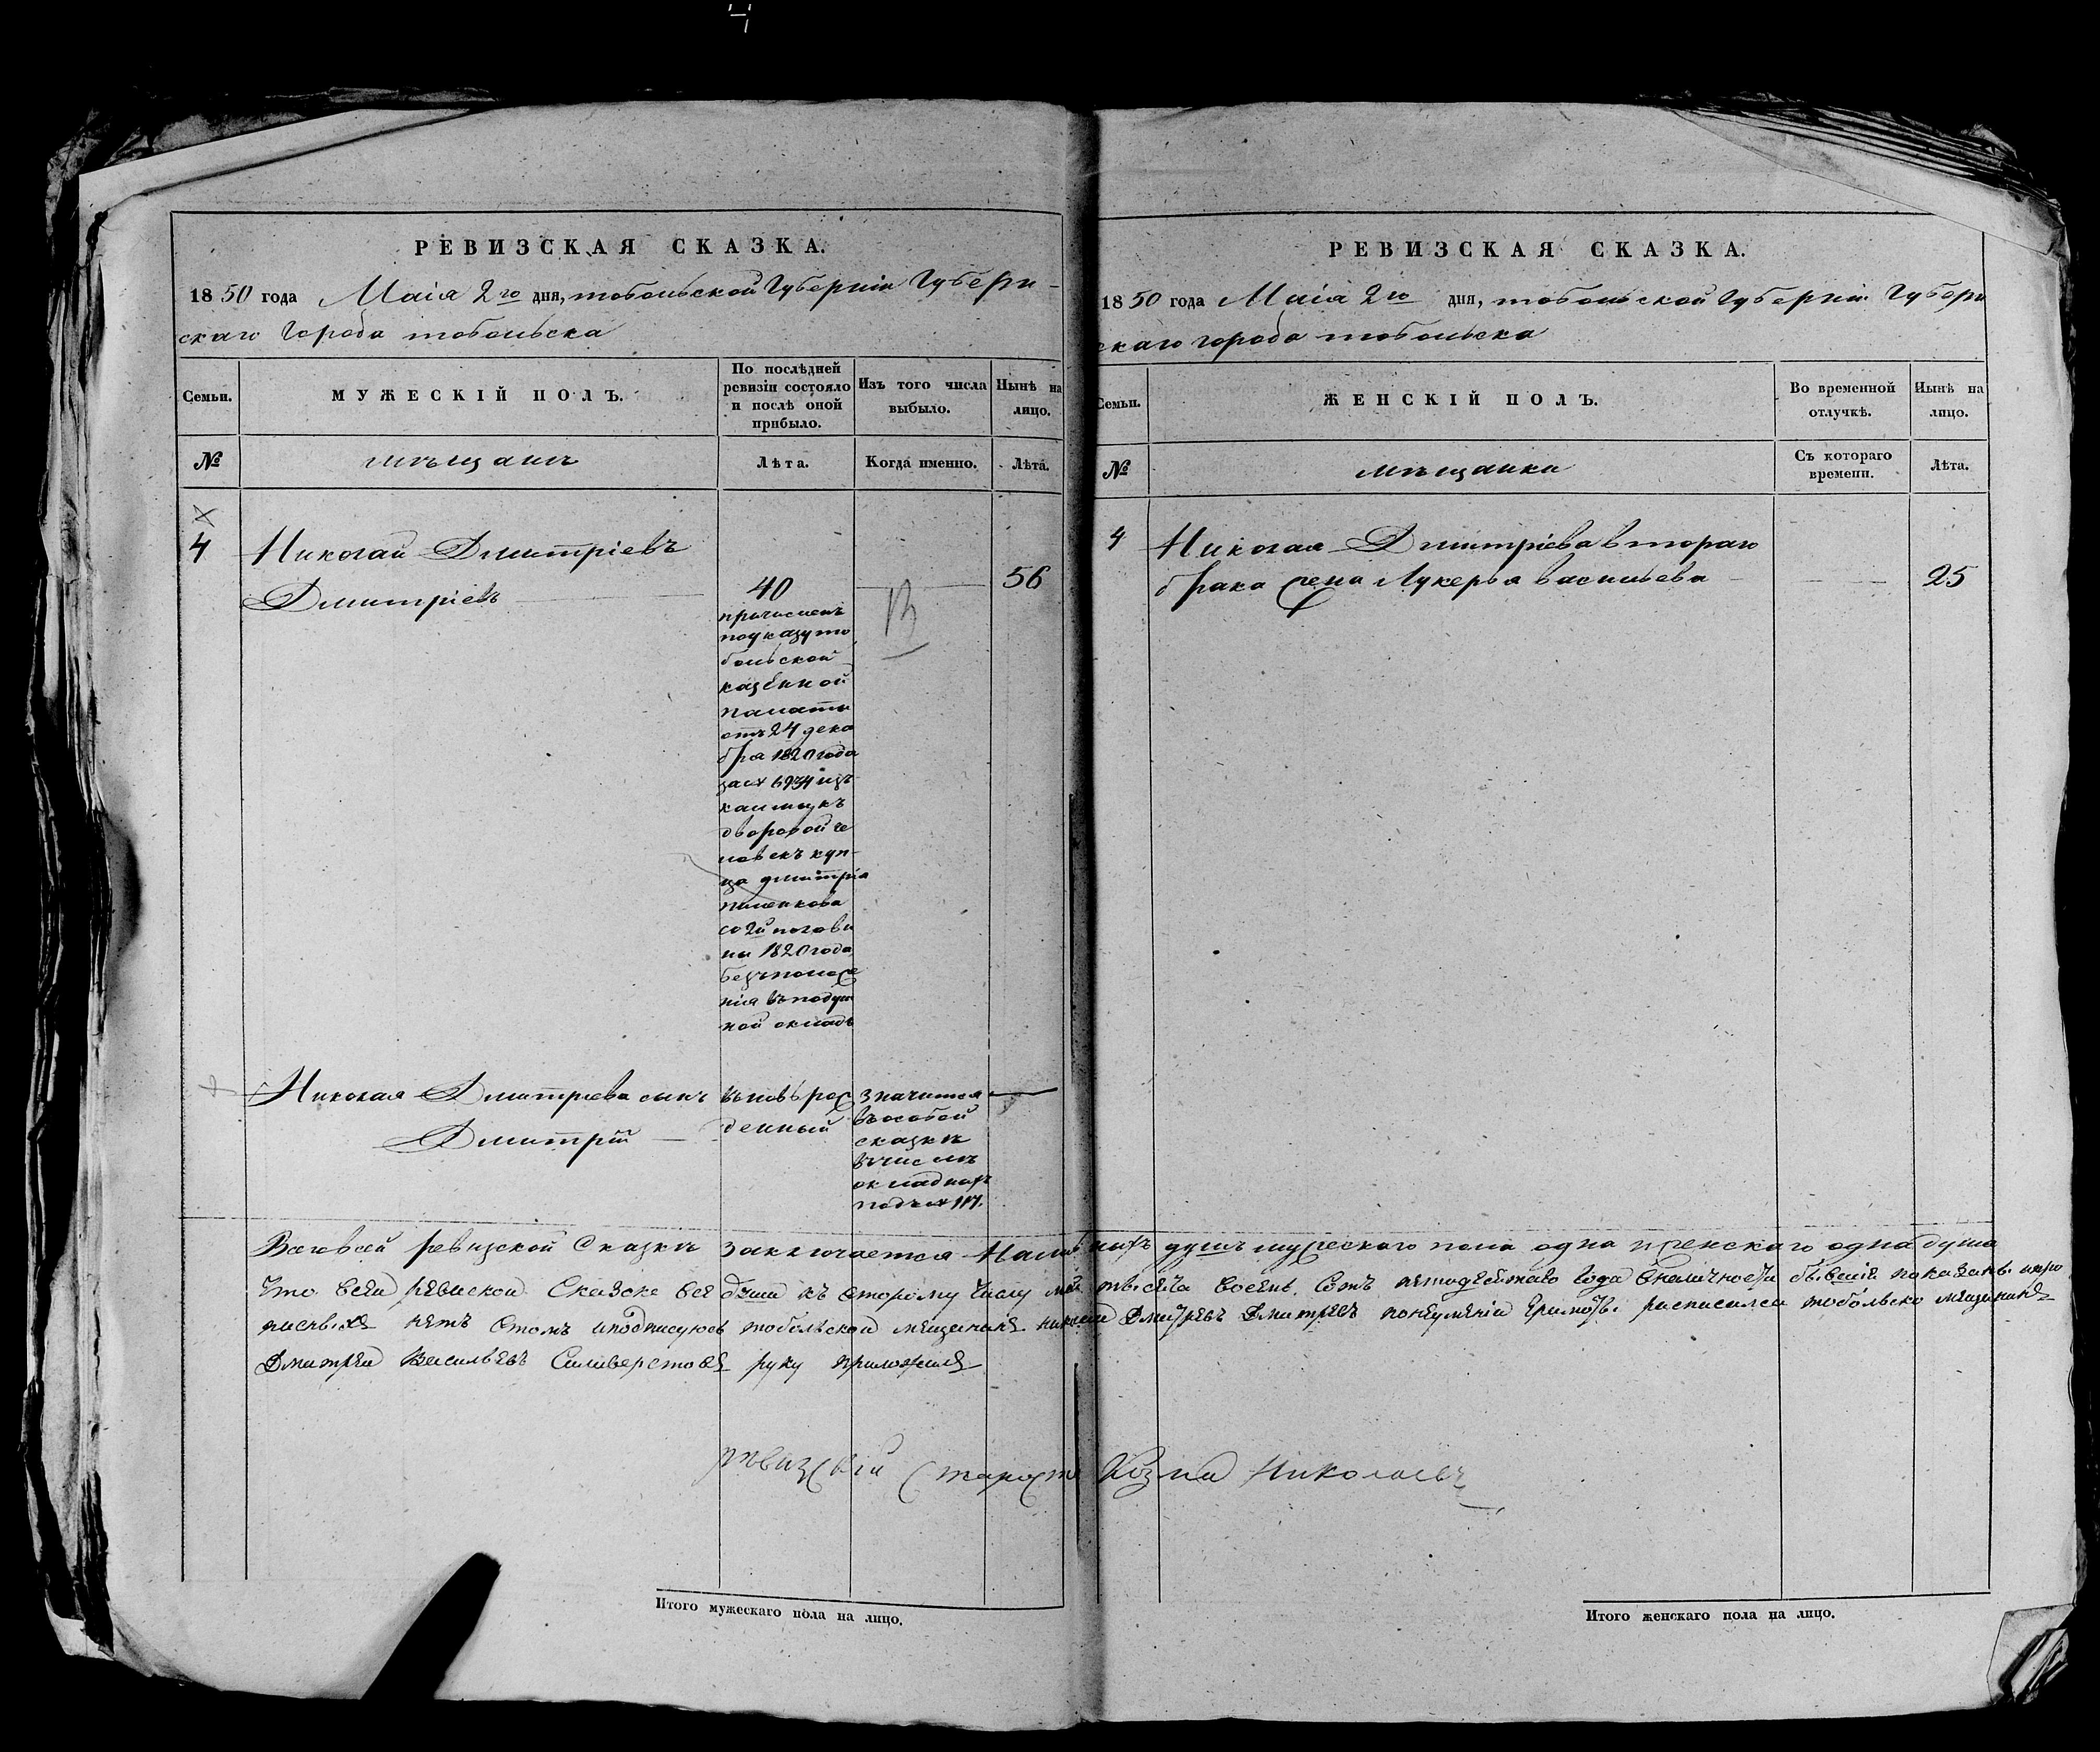 4
РЕВИЗСКАЯ СКАЗКА.
1850 года Маія 2го дня, тобольской Губерніи Губерн-
скаго Города тобольска
Семьи.
МУЖЕСКІЙ ПОЛЪ.
По послѣдней ревизіи состояло и послѣ оной прибыло.
Изъ того числа выбыло.
Нынѣ на лицо.
№
мѣщанъ
Лѣта.
Когда именно.
Лѣта.
4
Николай Дмитріевъ
Дмитріевъ
40
56
причисленъ
по указу то
больской
казенной
палаты
отъ 24 дека
бря 1820 года
за № 6934 изъ
калмыкъ
дворовой че
ловекъ куп-
ца дмитрія
пиленкова
со 2й полови
ны 1820 года
безъ положе
нія въ подуш
ной окладъ
Николая Дмитріева сынъ
Дмитрій
вновь рож
денный
значится
въ особой
сказкѣ
въ числѣ
окладныхъ
подъ № 117.
РЕВИЗСКАЯ СКАЗКА.
1850 года Маія 2го дня, тобольской Губерніи Губерн
скаго города тобольска
Семьи.
ЖЕНСКІЙ ПОЛЪ.
Во временной отлучкѣ.
Нынѣ на лицо.
№
мѣщанки
Съ котораго времени.
Лѣта.
4
Николая Дмитріева втораго
брака жена Лукерья васильева
25
Во всей ревизской Сказкѣ заключается наличныхъ душъ мужескаго пола одна и женскаго одна душа
что всеи ревиской Сказке все души къ второму числу маія тысеча восемь сотъ петодесятаго года в наличности бывшие показаны и про
писныхъ нетъ втомъ и подписуюсь тобольской мещининъ николаи Дмитревъ Дмитревъ понеуменіи грамоты росписился тобольско мещининъ
Дмитреи Васильевъ Силиверстовъ руку приложилъ
ревизскій староста Козма Николаевъ
Итого мужескаго пола на лицо.
Итого женскаго пола на лицо.